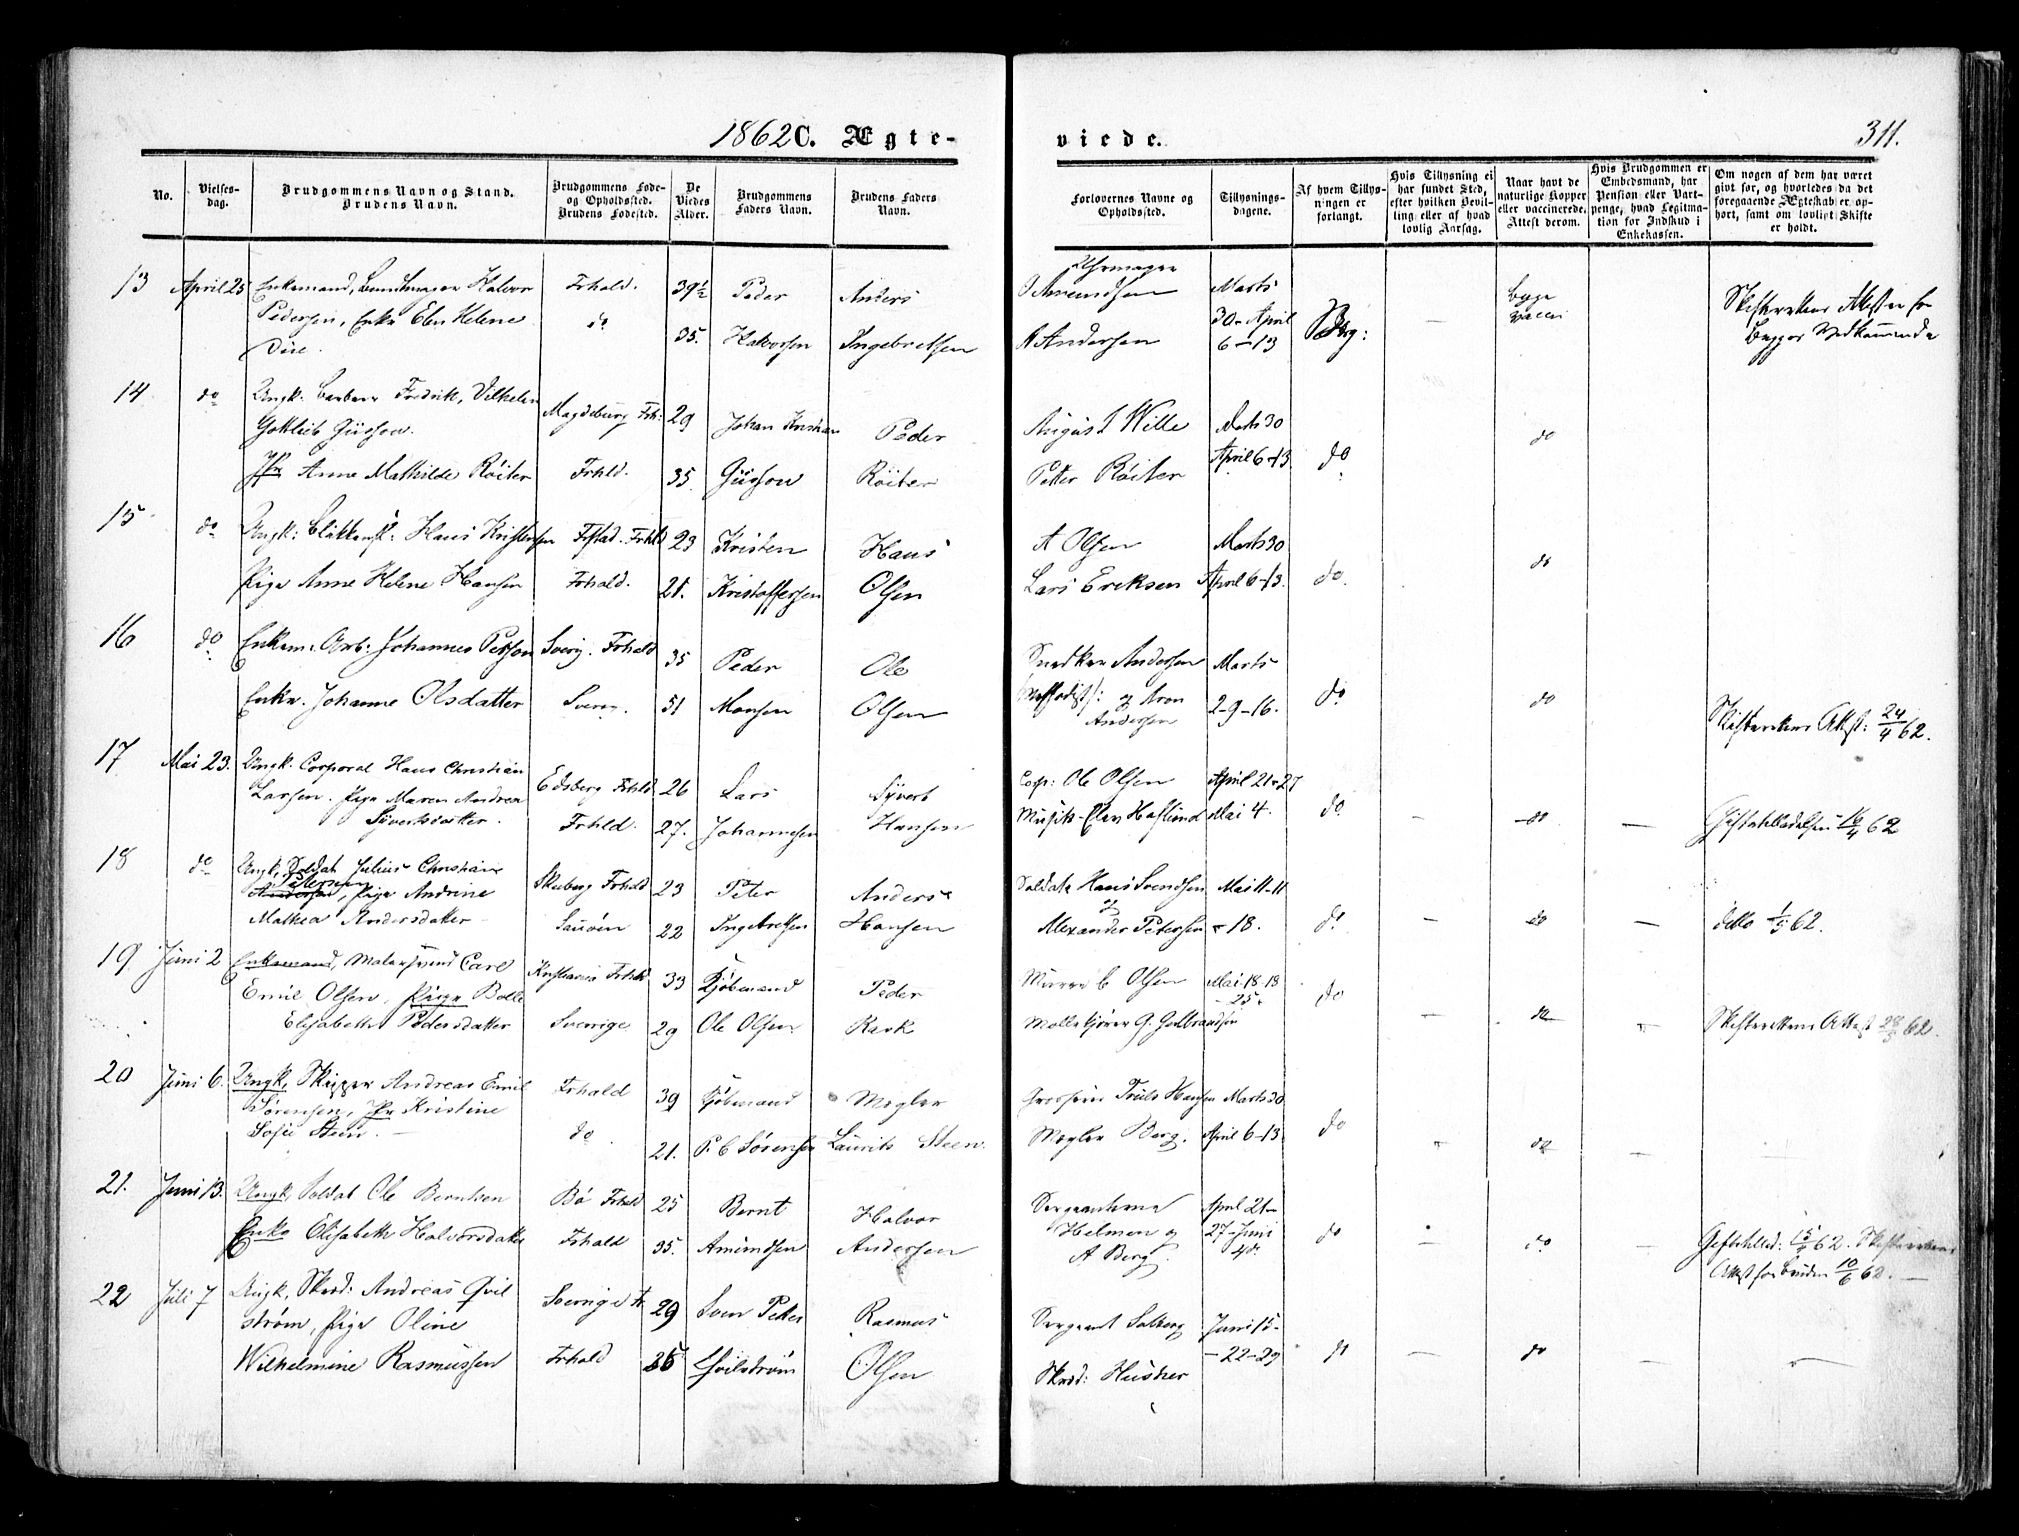 1862 C. Ægte-
viede.
311.
No.
Vielses-
dag.
Brudgommens Navn og Stand.
Brudens Navn.
Brudgommens Føde-
og Opholdssted.
Brudens Fødested.
De
Viedes
Alder.
Brudgommens
Faders Navn.
Brudens Faders
Navn.
Forlovernes Navne og
Opholdssted.
Tillysnings-
dagene.
Af hvem Tillys-
ningen er
forlangt.
Hvis Tillysning ei
har fundet Sted,
efter hvilken Bevil-
ling eller af hvad
lovlig Aarsag.
Naar havt de
naturlige Kopper
eller vaccinerede,
Attest derom.
Hvis Brudgommen er
Embedsmand, har
Pension eller Vart-
penge, hvad Legitma-
tion for Indskud i
Enkekassen.
Om nogen af dem har været
givt før, og hvorledes da det
foregaaende Ægteskab er op-
hørt, samt om lovligt Skifte
er holdt.
13 April 25 Enkemand, Halvor Frhald. 39½ Peder Anders
Pedersen, Enke Elen Helene do 35. Halvorsen Ingebretsen
Due.
Uhrmager
Amundsen Marts
30 - April
A Andersen 6-13 Brg: — begge
vacci
Skifterettens Attester for
begge Vedkommende
14 do Ungk: Fredrik, Vilhelm Magdeburg Frh: 29 Johan Kristian Peder
Gotlieb Güsson.
Jfr Anne Mathilde Röiter Frhld. 35. Güsson Röiter
August Wille Marts 30
Petter Röiter April 6-13 do do
15 do Ungk: Hans Kristensen Frstad. Frhld 23 Kristen Hans
Pige Anne Helene Hansen Frhald. 21. Kristoffersen Olsen
A Olsen Marts 30
Lars Eriksen April 6-13. do do
16 do Enkem. Arb: Johannes Petterson Sverig. Frhald 35 Peder Ole
Enke. Johanne Olsdatter Sverig. 51 Monsen Olsen
Snedker Andersen Marts
og Aron
Andersen 2-9-16. do do
Skifterettens Attest: 24/4 62.
17 Mai 23. Ungk. Corporal Hans Christian Edsberg Frhld. 26 Lars Syvert
Larsen. Pige Maren Andrea
Syvertsdatter. Frhld. 27. Johannesen Hansen
Corp: Ole Olsen April 21-27
Musik-Elev Haslund Mai 4. do — do — Giftetilladelsen 16/4 62
18 do Ungk, Soldat Julius Christian
Petersen
Andersen, Pige Andrine Skeberg Frhald 23 Peter Anders
Mathea Andersdatter Sauøen 22 Ingebretsen Hansen
Soldat Hans Svendsen Mai 11-11
og
Alexander Petersen - 18. do — do — detto 1/5 62.
19 Juni 2 Enkemand, Malersvend Carl Kristiania Frhld 33 Kjøbmand Peder
Emil Olsen, Pige Bolle
Elisabeth Pedersdatter Sverrige 29 Ole Olsen Rask
Murer C Olsen Mai-18-18
- 25.
Møllekjører G. Gulbrandsen do — do - Skifterettens Attest 28/5 62.
20 Juni 6. Ungk, Skipper Andreas Emil Frhald 39 Kjøbmand Mægler
Sørensen, Jfr Kristine
Sofie Steen. — do 21. P. C Sørensen Laurits Steen.
Grosserer Truls Hansen Marts 30
Mægler Berg. April 6-13 do - do -
21. Juni 13. Ungk, Soldat Ole Berntsen Bø Frhald 25 Bernt Halvor
Enke Elisabeth Halvorsdatter Frhald 35. Amundsen Andersen
Sergeanterne April 21-
Helmen og 27-Juni
A Berg. do — do — Giftetillad: 15/4 62. Skifterettens
Attest for Bruden 10/6 62. —
22 Juli 7 Ungk, Skræd: Andreas Qvil Sverrige Fr 29 Sven Petter Rasmus
strøm, Pige Oline
Wilhelmine Rasmussen Frhald 35 Qvilstrøm Olsen
Sergeant Solberg Juni 15-
- 22-29
Skræd: Husher do — do —